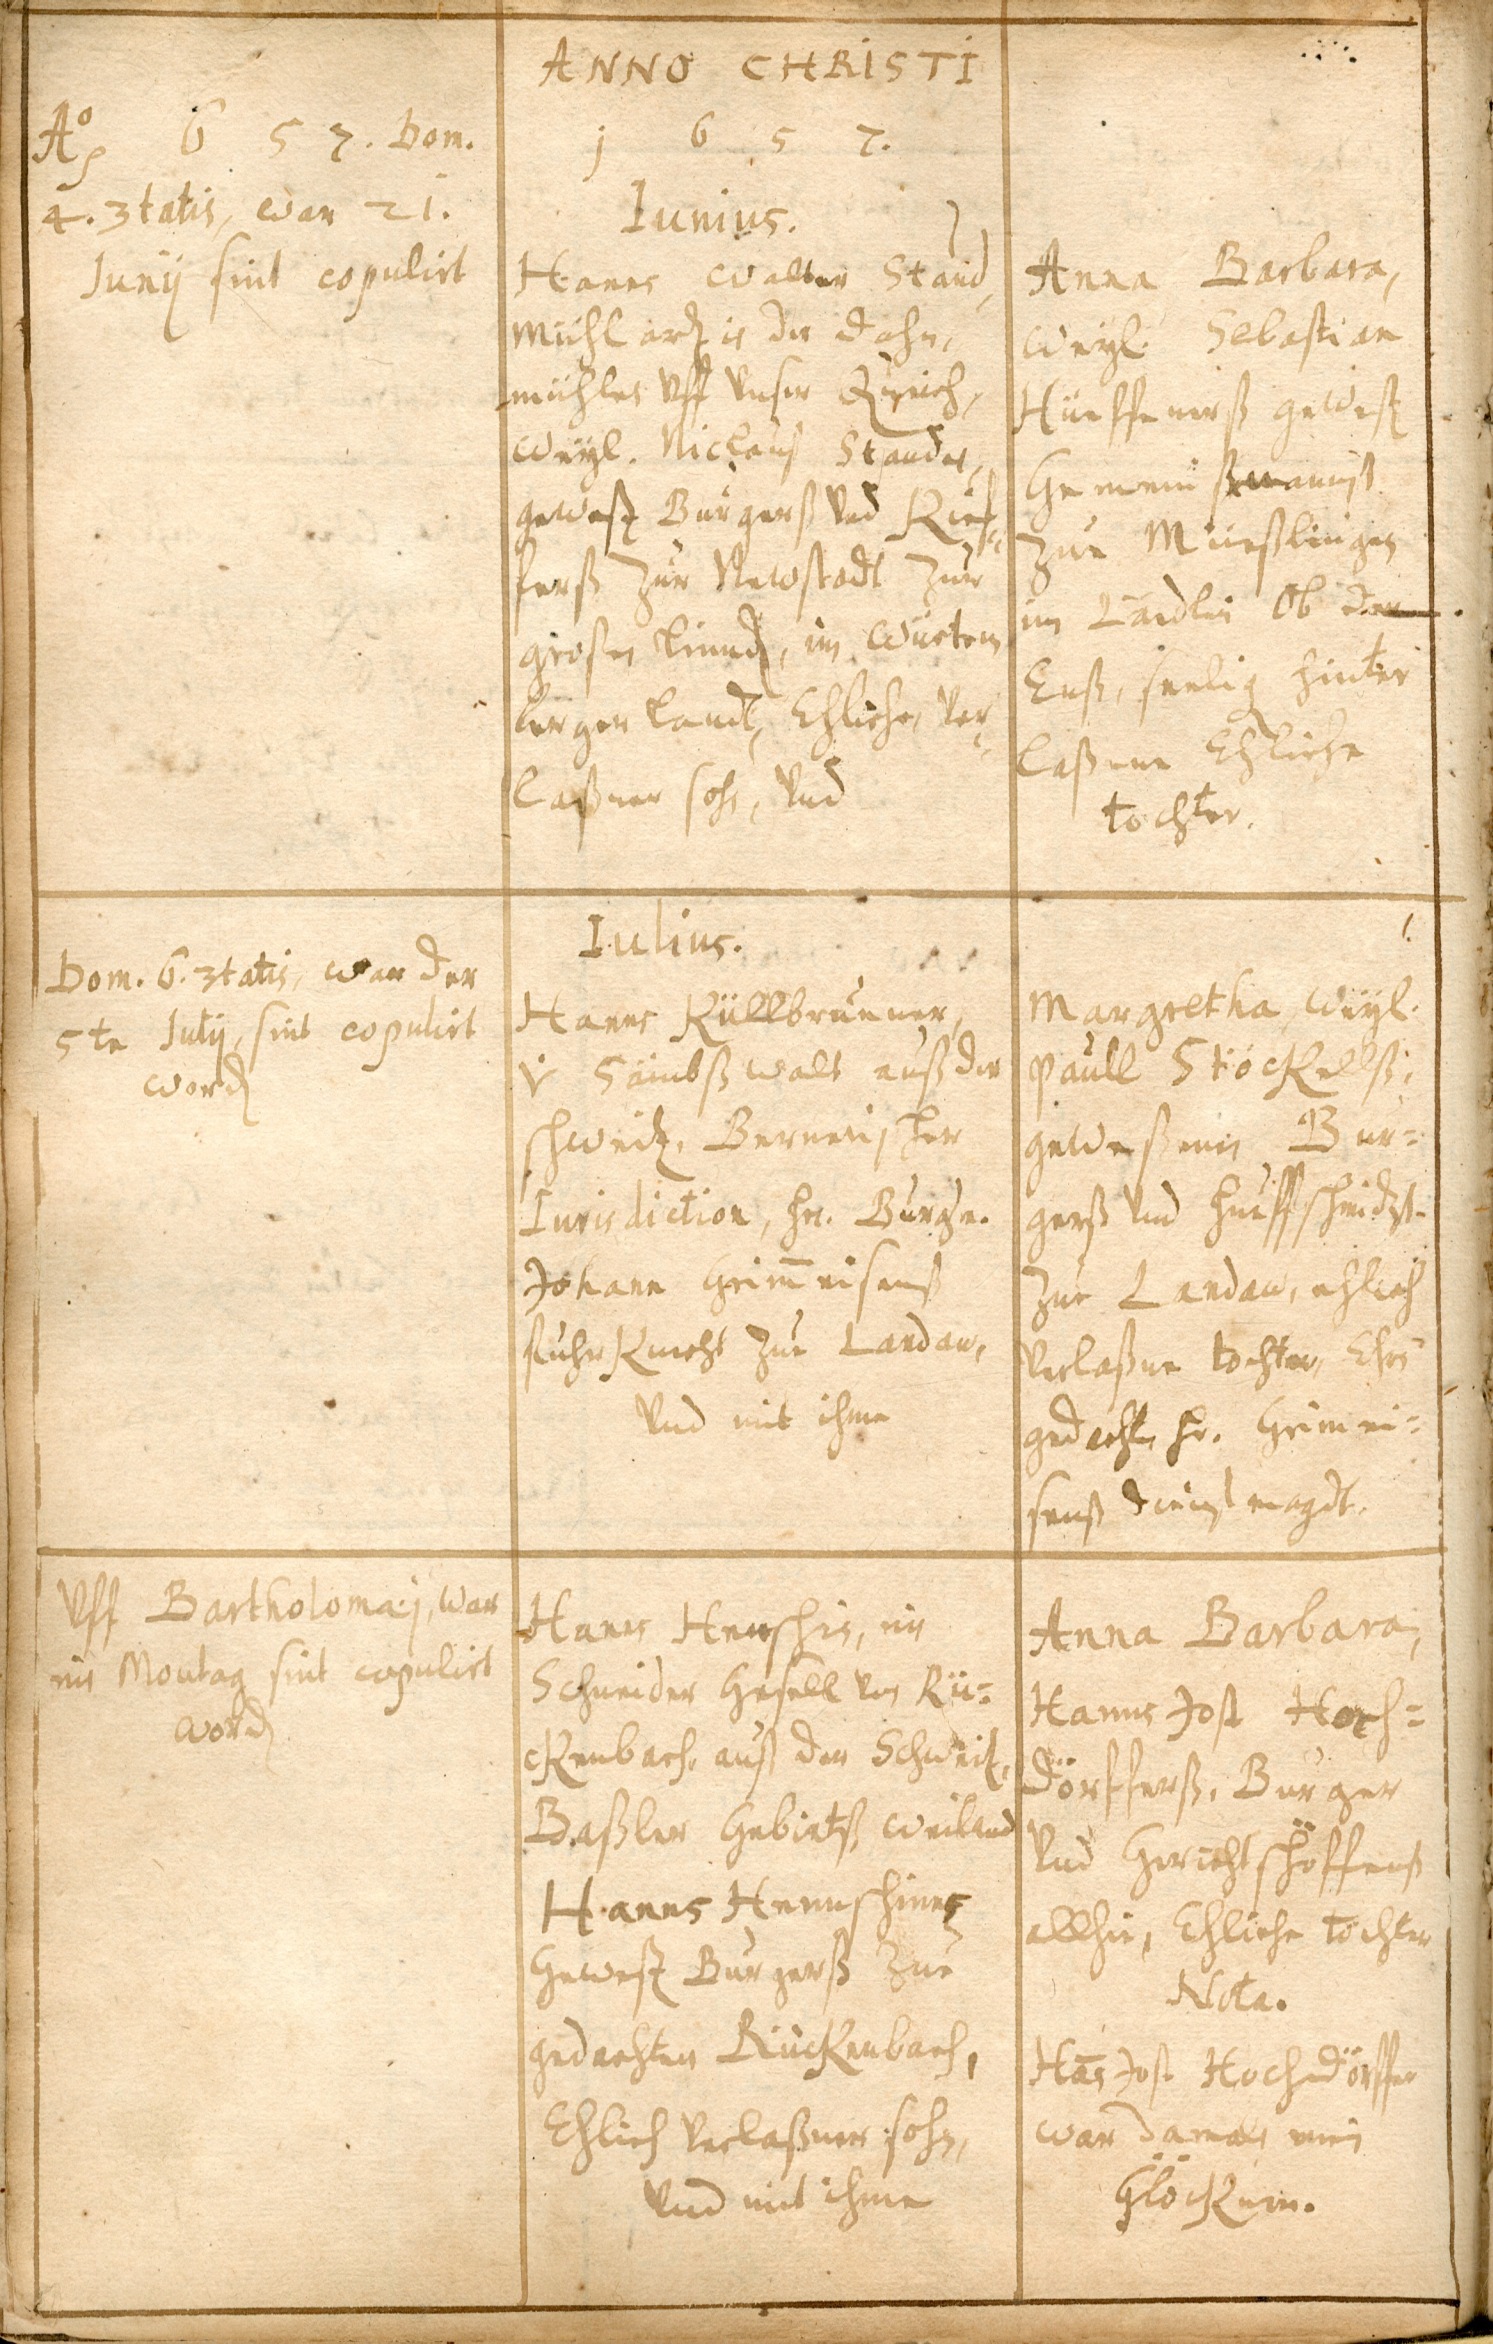 ANNO CHRISTI
1 6 5 7.
Aõ 6 5 7. Dom.
4. 3tatis, war 21.
Junij sint copulirt
Iunius.
Hanns Walter Stand,
Mühlartz in der
mühlen Vff Vnser Queich,
Weyl. Niclauß Standes,
gewesz Burgerß Vnd Kief-
ferß zur Newstadt zur
großen Linnd, im Würtem
berger Landt, Ehlicher, Ver-
laßner sohn, Vnd
Anna Barbara,
Weyl. Sebastian
Hüeffnerß gewesz
Gemeinßmannß
zue Mueßlingen
im Ländlin Ob der
Enß, seelig hinter
laßene Ehliche
tochter.
Iulius.
Dom. 6. 3tatis, war der
5te Julij, sint copulirt
word
Hanns Küllbrunner,
V Sämbßwalt auß der
schweitz, Bernerischer
Iurisdiction, hn. Burge.
Johann Grim̄eisenß
fuhrKnecht zue Landaw,
Vnd mit ihme
Margretha Weyl.
Paull StöcKellß,
geweßenen Bur-
gerß Vnd huffschmidß
zue Landaw, ehlich
Verlaßne tochter, Ehr
gedacht hr. Grimei-
senß dienstmagdt.
Vff Bartholomæi, war
ein Montag sint copulirt
word
Hanns Hemschin, ein
Schneider Gesell von Rü-
cKenbach, auß der Schweitz,
Baßler Gebietß Weiland
Hanns Hemschines
Gewesz Burgerß zue
gedachten RücKenbach,
Ehlich Verlaßner sohn,
Vnd mit ihme
Anna Barbara,
Hanns Jost Hoch-
dörfferß, Burger
Vnd Gerichtschöffenß
allhie, Ehliche tochter
Nota.
Han̄s Jost Hochdörffer
war damals mein
GlöcKner.